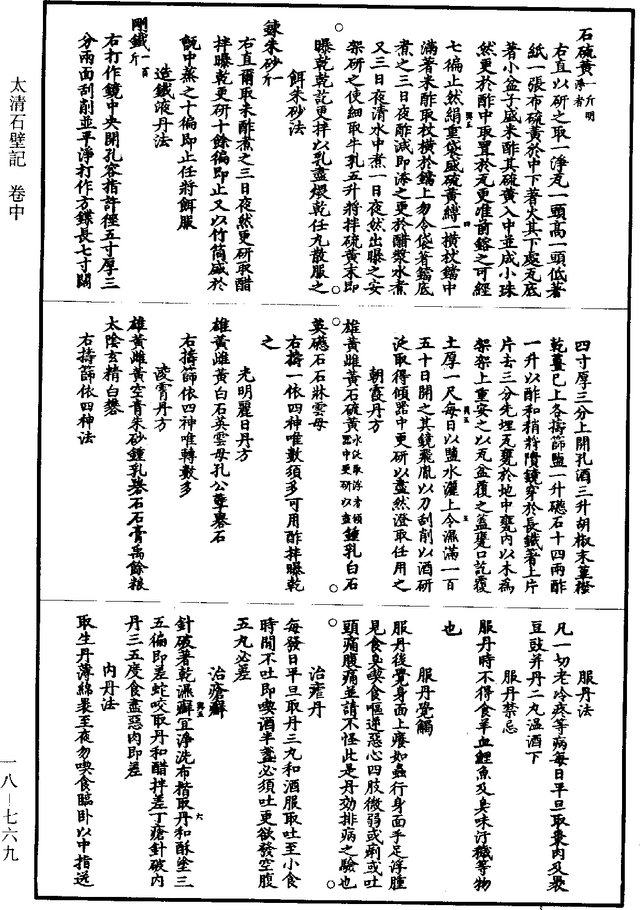 太清石壁記　卷中
一八—七六九
石硫黃一斤明淨者
右直以研之取一淨瓦一頭高一頭低著
紙一張布硫黃於中下著火其下處瓦底
著小盆子盛米酢其硫黃入中並成小珠
然更於酢中取置於瓦更准前鎔之可經
七徧止然絹重袋盛硫黃縛一橫杖鐺中
滿著米酢取杖橫於鐺上勿令袋著鐺底
煮之三日夜酢減即添之更於醋漿水煮
又三日夜清水中煮一日夜然出曝之安
架研之使細取牛乳五升將拌硫黃末即
曝乾乾訖更拌以乳盡煨乾任丸散服之
餌朱砂法
鍊朱砂一斤
右直爾取米酢煮之三日夜然更研取醋
拌曝乾更研十餘徧即止又以竹筒盛於
甑中蒸之十徧即止任將餌服
造鐵液丹法
剛鐵一百斤
右打作鏡中央開孔容指許徑五寸厚三
分兩面刮削並平淨打作方鏶長七寸闊
四寸厚三分上開孔酒三升胡椒末蓽橃
乾薑已上各擣篩鹽一升礠石十四兩酢
一升以酢和稍將隤鏡穿於長鐵著上片
片去三分先埋瓦甕於地中甕內以木為
架架上重安之以瓦盆覆之蓋甕口訖覆
土厚一尺每日以鹽水灑上令濕滿一百
五十日開之其鏡飛胤以刀刮削以酒研
淀取得傾器中更研以盡然澄取任用之
朝霞丹方
雄黃雌黃石硫黃水淀取浮者傾器中更研以盡鍾乳白石
英礠石石牀雲母
右擣一依四神唯數須多可用酢拌曝乾
之
光明麗日丹方
雄黃雌黃白石英雲母孔公孽礜石
右擣篩依四神唯轉數多
凌霄丹方
雄黃雌黃空青朱砂鍾乳礜石石膏禹餘粮
太陰玄精白礬
右擣篩依四神法
服丹法
凡一切老冷疾等病每日平旦取棗肉及裹
豆豉并丹二丸溫酒下
服丹禁忌
服丹時不得食羊血鯉魚及臭味汙穢等物
也
服丹覺觸
服丹後覺身面上癢如蟲行身面手足浮腫
見食臭喫食嘔逆惡心四肢微弱或痢或吐
頭痛腹痛並請不怪此是丹効排病之驗也
治瘧丹
每發日平旦取丹三丸和酒服取吐至小食
時間不吐即喫酒半盞必須吐更欲發空腹
五丸必差
治瘡癬
針破著乾濕癬宜淨洗布揩取丹和酥塗三
五徧即差蛇咬取丹和醋拌差丁瘡針破內
丹三五度食盡惡肉即差
內丹法
取生丹薄綿裹至夜勿喫食臨卧以中指送